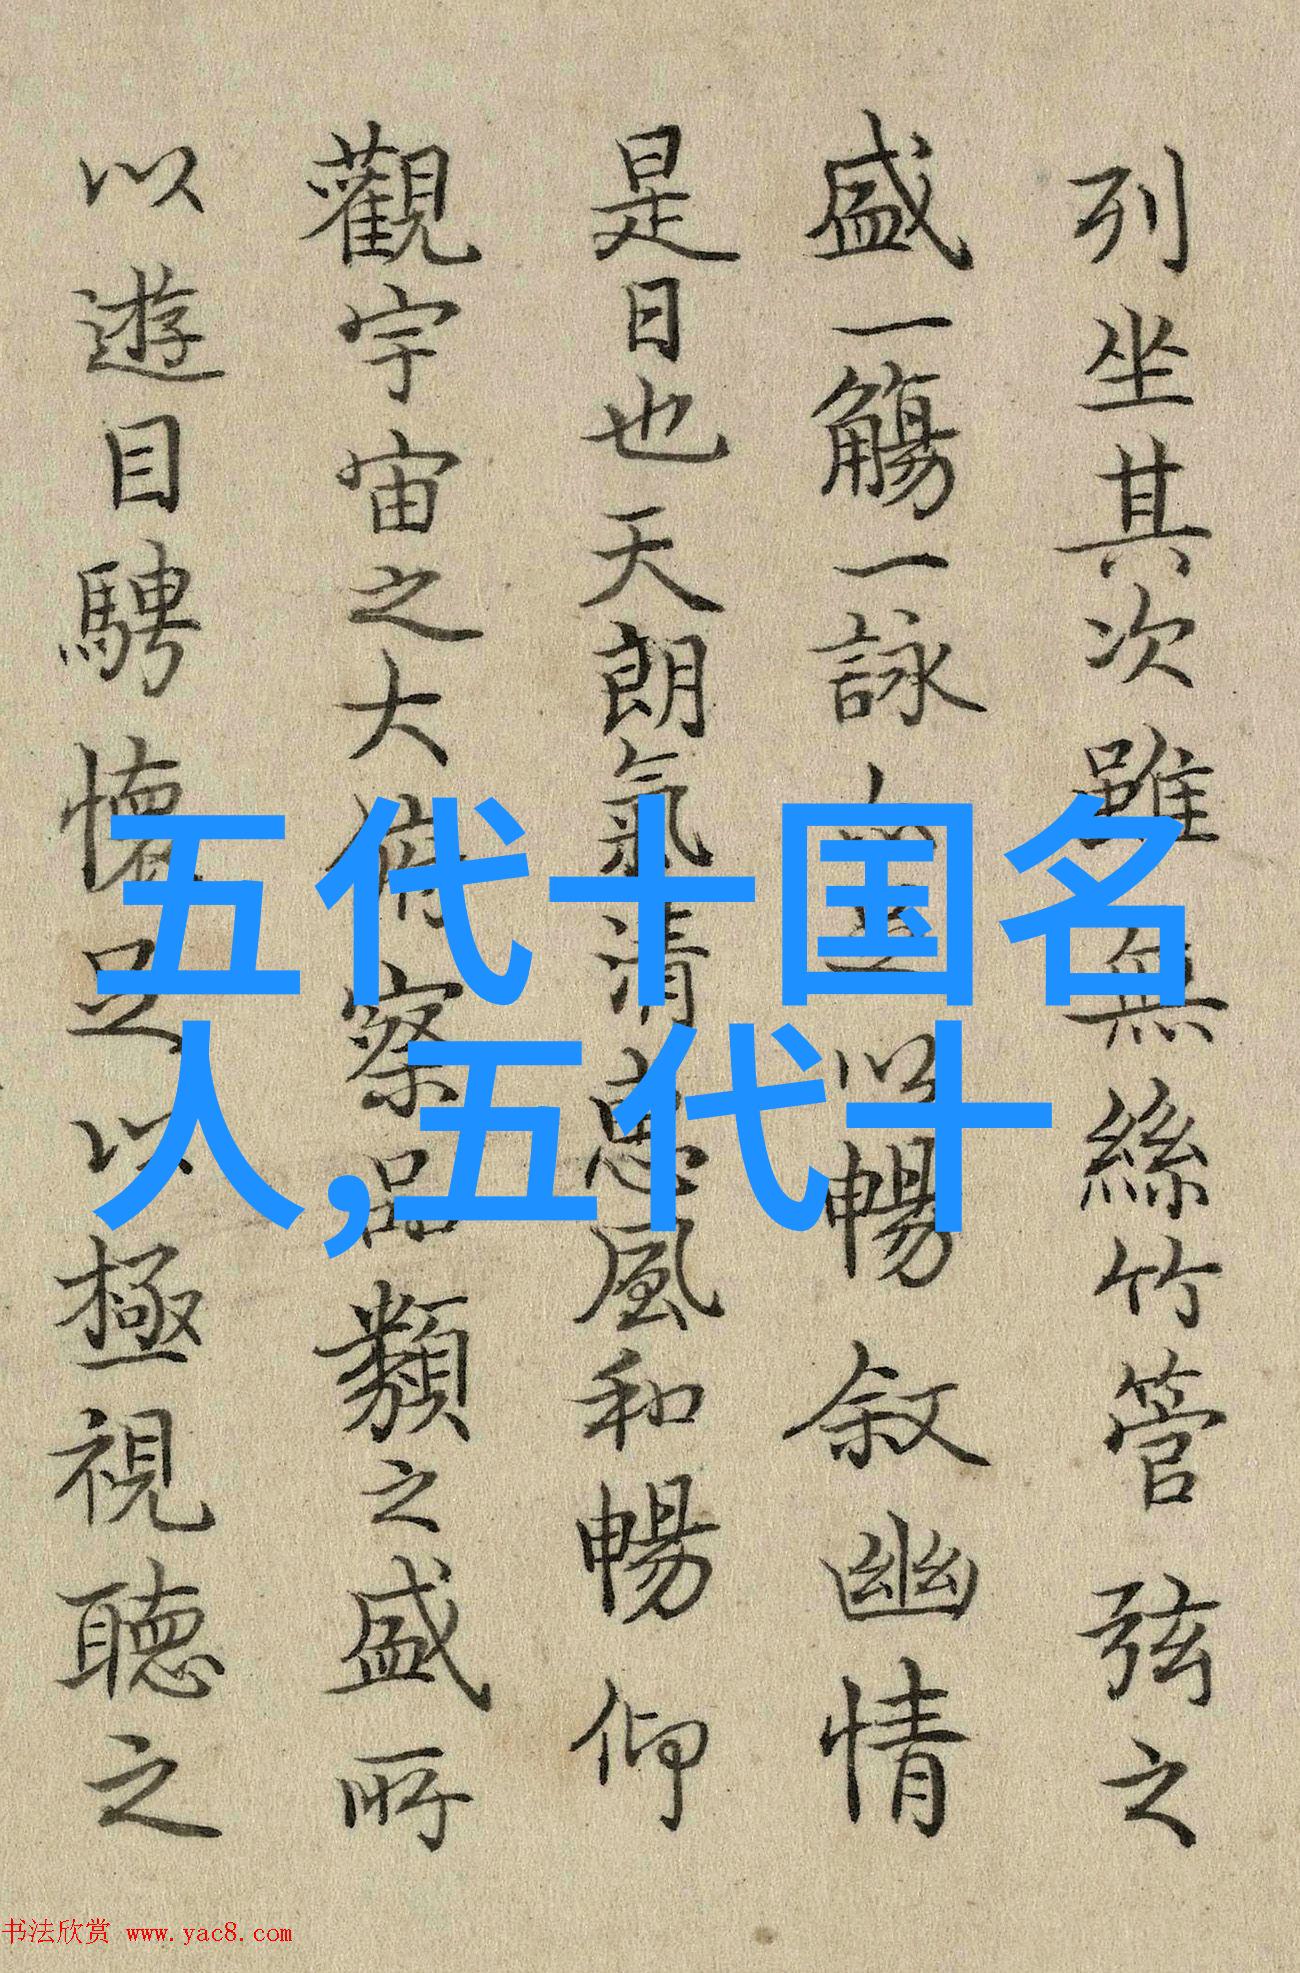 列坐其次雖無絲竹管弦之
盛一觴一詠以暢叙幽情
是日也天朗氣清惠風和暢仰
觀宇宙之大俯察品類之盛所
以遊目騁懷足以極視聽之
五代十国名
人,五代十
书法欣赏 www.yac8.com